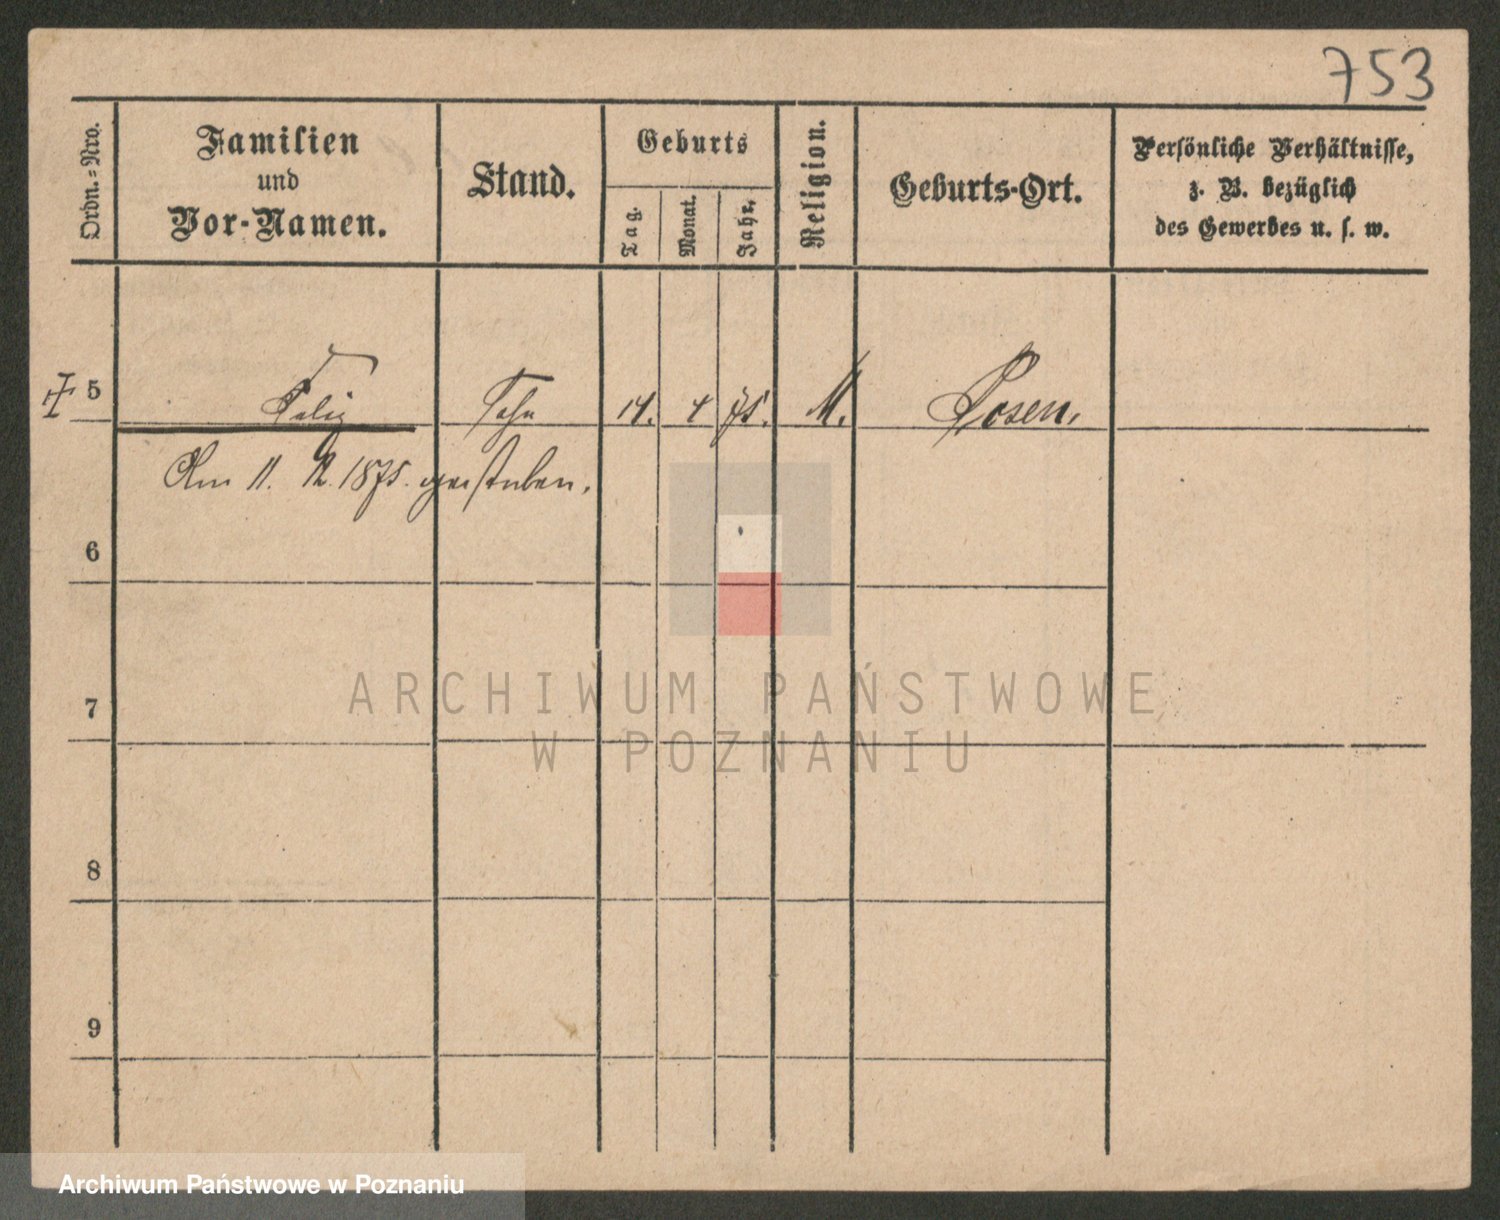 753
Ordn.=Nro.
Familien
und
Vor-Namen.
Stand.
Geburts
Tag.
Monat.
Jahr.
Religion.
Geburts-Ort.
Persönliche Verhältnisse,
z. B. bezüglich
des Gewerbes u. s. w.
5 Felix Sohn 14. 4 75. Posen.
Am 11. 12. 1875. gestorben.
6
7
8
9
ARCHIWUM PAŃSTWOWE
W POZNANIU
Archiwum Państwowe w Poznaniu